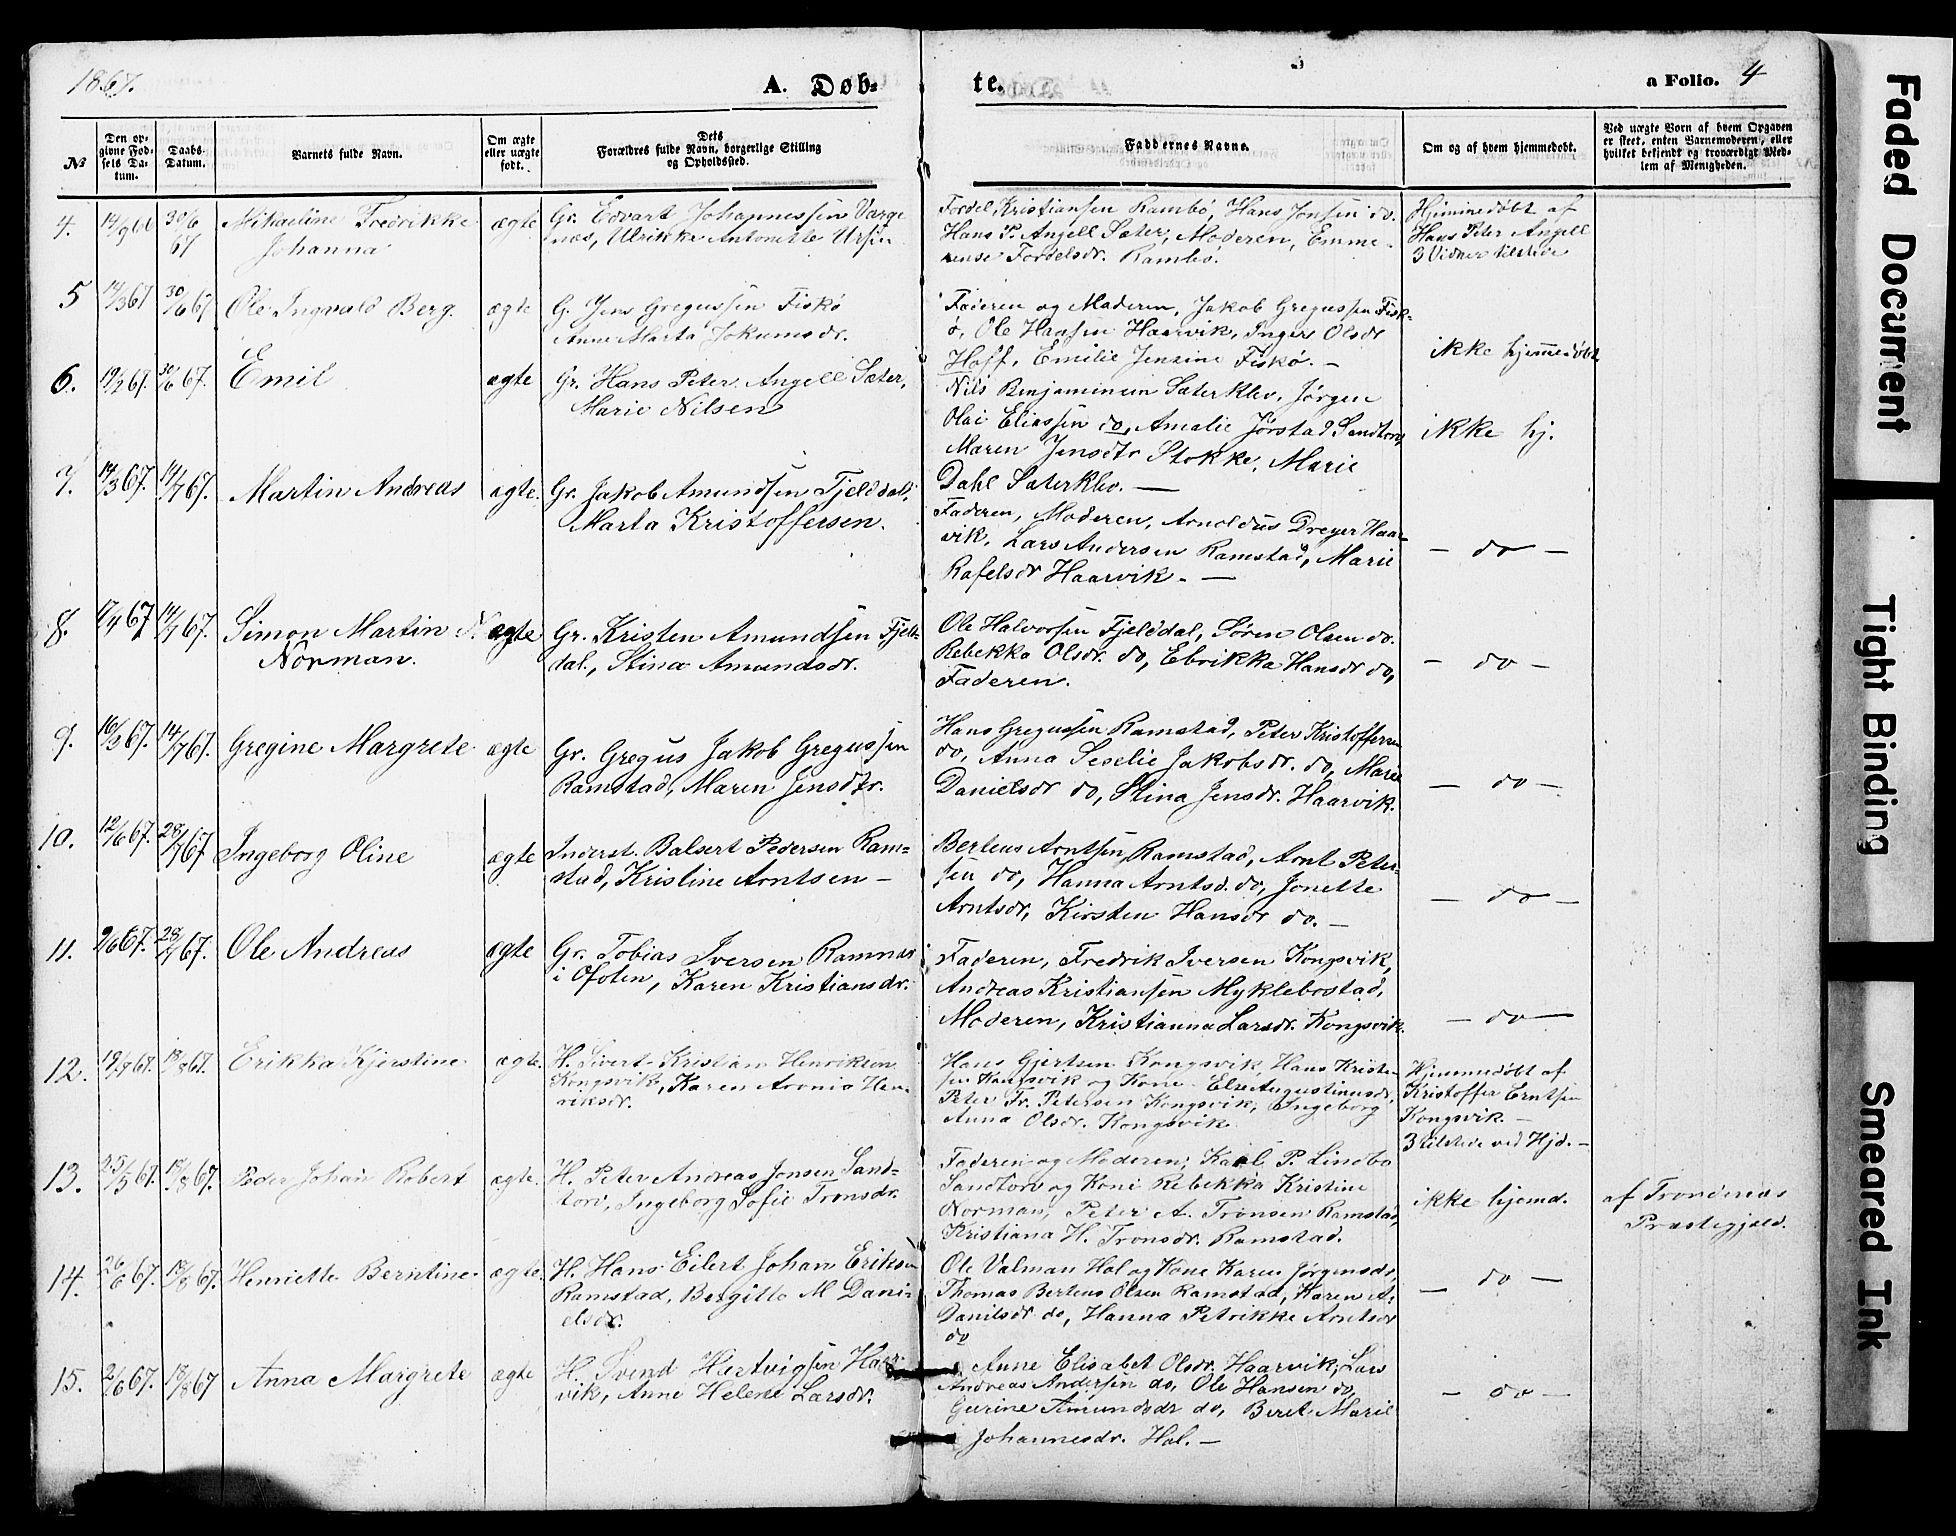 1867.
A. Døb-
te.
a Folio. 4
№
Den op-
givne Fød-
sels Da-
tum.
Daabs-
Datum.
Barnets fulde Navn.
Om ægte
eller uægte
født.
Dets
Forældres fulde Navn, borgerlige Stilling
og Opholdssted.
Faddernes Navne.
Om og af hvem hjemmedøbt.
Ved uægte Børn af hvem Opgaven
er skeet, enten Barnemoderen, eller
hvilket bekjendt og troværdigt Med-
lem af Menigheden.
4.
14/9 66
30/6
67
Mikaeline Fredrikke
Johanna
ægte
Gr. Edvart Johannessen Varge
næs, Ulrikke Antonette Ursin
Fordel Kristiansen Rambø, Hans Jonsen do.
Hans P. Angell Sæter, Moderen, Emme-
rense Fordelsdr. Rambø.
Hjemmedøbt af
Hans Peter Angell
3 Vidner tilstede
5
14/3 67
30/6 67
Ole Ingvald Berg.
ægte
G. Jens Gregussen Fiskø
Anne Marta Jokumsdr.
Faderen og Moderen, Jakob Gregussen Fisk-
ø, Ole Hansen Haarvik, Inger Olsdr
Hoff, Emilie Jensine Fiskø. —
ikke hjemmedøbt
6.
19/2 67.
30/6 67.
Emil
ægte
Gr. Hans Peter Angell Sæter,
Marie Nilsen
Nils Benjaminsen Sæterklev, Jørgen
Olai Eliassen do, Amalie Jørstad Sandtorv,
Maren Jensdtr Stokke, Marie
Dahl Sæterklev. —
ikke hj.
7.
14/3 67.
14/7 67.
Martin Andreas
ægte.
Gr. Jakob Amundsen Fjelddal,
Marta Kristoffersen.
Faderen, Moderen, Arnoldus Dreyer Haar-
vik, Lars Andersen Ramstad, Marie
Rafelsdr Haarvik. —
— do —
8.
17/4 67
14/7 67.
Simon Martin
Norman.
ægte
Gr. Kristen Amundsen Fjeld-
dal, Stina Amundsdr.
Ole Halvorsen Fjelddal, Søren Olsen do.
Rebekka Olsdr. do, Ebrikka Hansdr do,
Faderen.
— do —
9.
10/3 67.
14/7 67.
Gregine Margrete
ægte
Gr. Gregus Jakob Gregussen
Ramstad, Maren Jensdtr.
Hans Gregussen Ramstad, Peter Kristoffersen
do, Anna Seselie Jakobsdr. do, Marie
Danielsdr do, Stina Jensdr. Haarvik.
— do —
10.
12/6 67.
28/7 67
Ingeborg Oline
ægte
Inderst. Balsert Pedersen Ram-
stad, Kristine Arntsen —
Berteus Arntsen Ramstad, Arnt Peter-
sen do, Hanna Arntsd. do, Jonette
Arntsdr, Kirsten Hansdr do. —
— do —
11.
2/6 67.
28/7 67.
Ole Andreas
ægte
Gr. Tobias Iversen Ramnæs
i Ofoten, Karen Kristiansdr.
Faderen, Fredrik Iversen Kongsvik,
Andreas Kristiansen Myklebostad,
Moderen, Kristianna Larsdr. Kongsvik.
— do —
12.
19/7 67.
18/8 67.
Erikka Kjerstine
ægte.
H. Sivert Kristian Henriksen
Kongsvik, Karen Avonia Hen-
riksdr.
Hans Gjertsen Kongsvik, Hans Kriste-
sen Kongsvik og Kone Else Augustinusdr,
Peter Fr. Petersen Kongsvik, Ingeborg
Anna Olsdr. Kongsvik
Hjemmedøbt af
Kristoffer Erntsen
Kongsvik. —
3 tilstede ved Hjd. —
13.
25/5 67.
18/8 67.
Peder Johan Robert
ægte.
H. Peter Andreas Jensen Sand-
torv, Ingeborg Sofie Tronsdr.
Faderen og Moderen; Karl P. Lindbo
Sandtorv og Kone Rebekka Kristine
Norman, Peter A. Tronsen Ramstad,
Kristiana H. Tronsdr. Ramstad.
ikke hjemd.
af Trondenæs
Præstegjeld.
14.
26/6 67.
18/8 67.
Henriette Berntine
ægte.
H. Hans Eilert Johan Eriksen
Ramstad, Bergitte M Dani-
elsdr.
Ole Valman Hol og Kone Karen Jørgensdr,
Thomas Berteus Olsen Ramstad, Karen A.
Danilsdr do, Hanna Petrikke Arntsdr
do
— do —
15.
2/6 67.
18/8 67
Anna Margrete
ægte
H. Svend Hartvigsen Haar-
vik, Anne Helene Larsdr.
Anne Elisabet Olsdr. Haarvik, Lars
Andreas Andersen do, Ole Hansen do,
Gurine Amundsdr do, Beret Marie
Johannesdr. Hol. —
— do —
Faded Document
Tight Binding
Smeared Ink